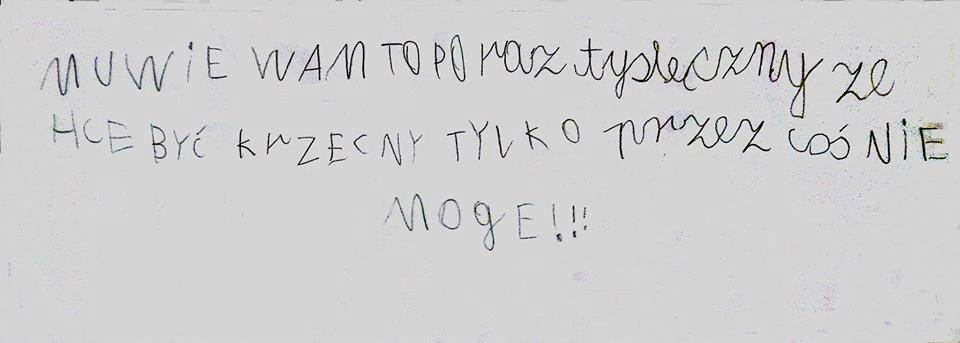 MUWiE WAM TO PO raz tysięczny ze
HCE BYĆ KrZECNY TYLKO przez coś NiE
MOgE!!!